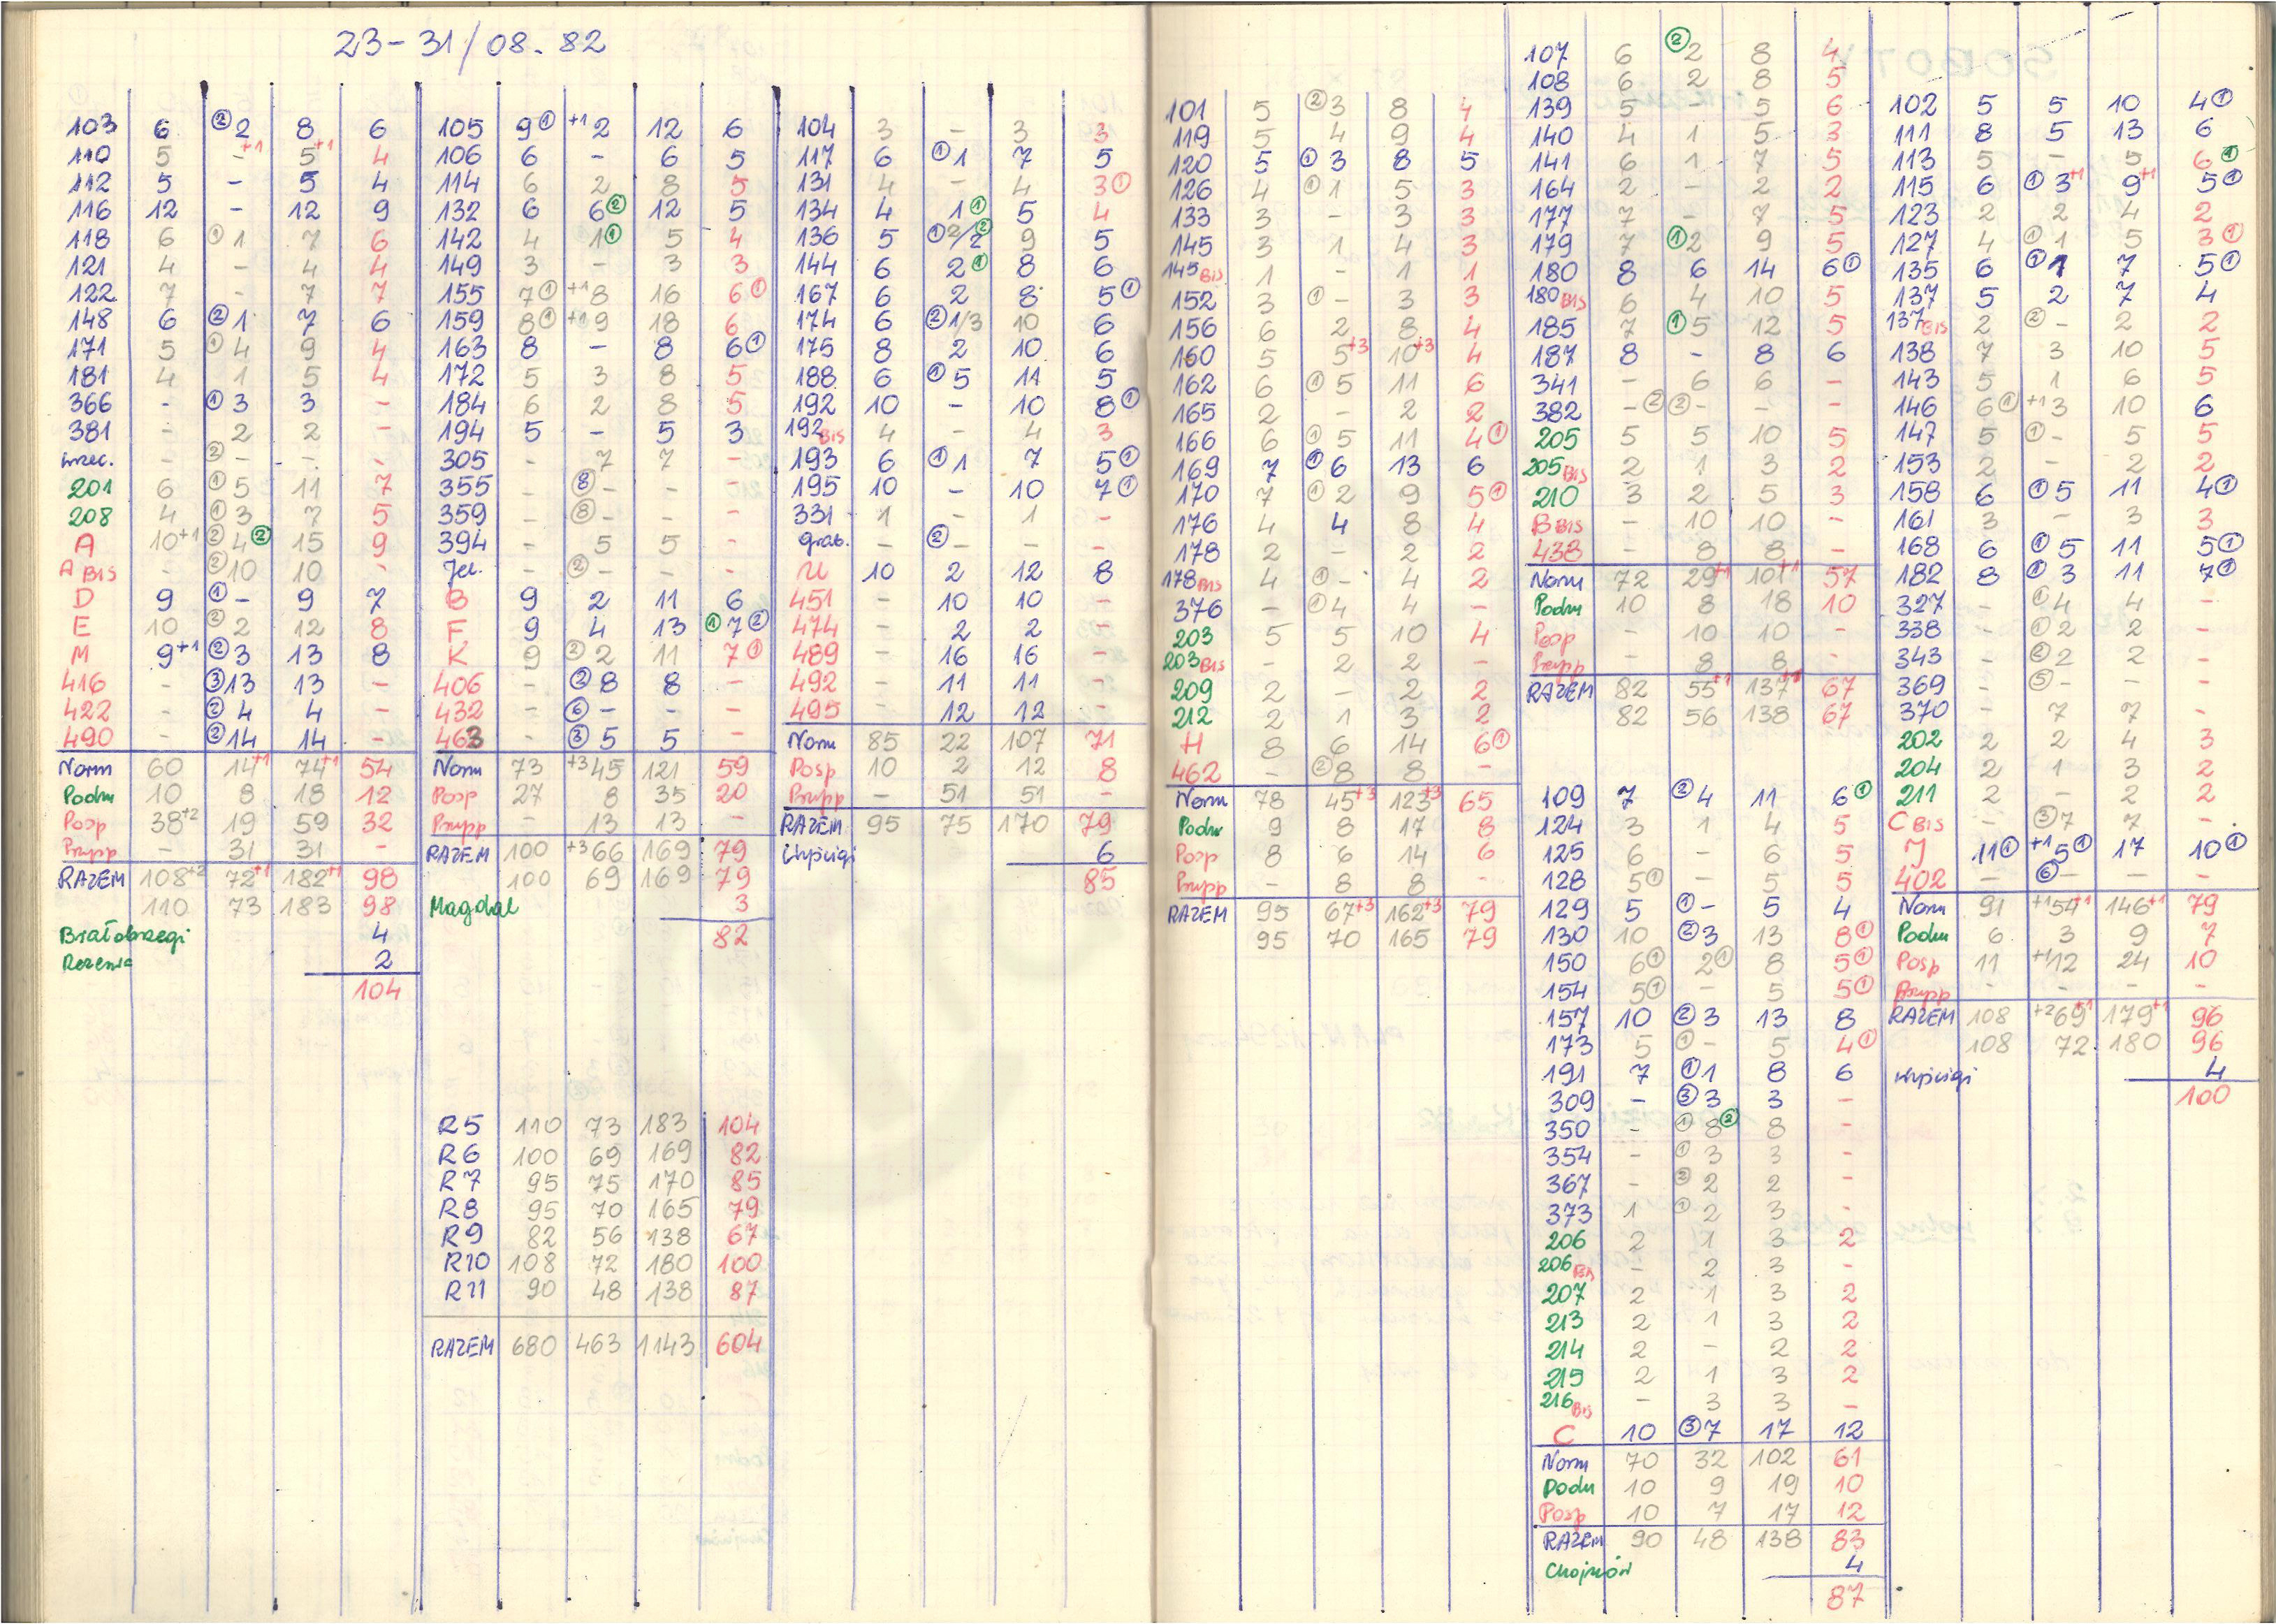 23-31/08.82
103 6 ②2 8 6
110 5 -+1 5+1 4
112 5 - 5 4
116 12 - 12 9
118 6 ①1 7 6
121 4 - 4 4
122 7 - 7 7
148 6 ②1 7 6
171 5 ①4 9 4
181 4 1 5 4
366 - ①3 3 -
381 - 2 2 -
- ②- - -
201 6 ①5 11 7
208 4 ①3 7 5
A 10+1 ②4② 15 9
A BIS - ②10 10 -
D 9 ①- 9 7
E 10 ②2 12 8
M 9+1 ②3 13 8
416 - ③13 13 -
422 - ②4 4 -
490 - ②14 14 -
Norm 60 14+1 74+1 54
Podm 10 8 18 12
Posp 38+2 19 59 32
Pzupp - 31 31 -
RAZEM 108+2 72+1 182+1 98
110 73 183 98
Białobrzegi 4
2
104
105 9① +12 12 6
106 6 - 6 5
114 6 2 8 5
132 6 6② 12 5
142 4 1① 5 4
149 3 - 3 3
155 7① +18 16 6①
159 8① +19 18 6
163 8 - 8 6①
172 5 3 8 5
184 6 2 8 5
194 5 - 5 3
305 - 7 7 -
355 - ⑧- - -
359 - ⑧- - -
394 - 5 5 -
Jel. - ②- - -
B 9 2 11 6
F 9 4 13 ①7②
K 9 ②2 11 7①
406 - ②8 8 -
432 - ⑥- - -
463 - ③5 5 -
Norm 73 +345 121 59
Posp 27 8 35 20
Pzupp - 13 13 -
RAZEM 100 +366 169 79
100 69 169 79
Magdal 3
82
R5 110 73 183 104
R6 100 69 169 82
R7 95 75 170 85
R8 95 70 165 79
R9 82 56 138 67
R10 108 72 180 100
R11 90 48 138 87
RAZEM 680 463 1143 604
104 3 - 3 3
117 6 ①1 7 5
131 4 - 4 3①
134 4 1① 5 4
136 5 ①2/2② 9 5
144 6 2① 8 6
167 6 2 8 5①
174 6 ②1/3 10 6
175 8 2 10 6
188 6 ①5 11 5
192 10 - 10 8①
192 BIS 4 - 4 3
193 6 ①1 7 5①
195 10 - 10 7①
331 1 - 1 -
grab. - ②- - -
U 10 2 12 8
451 - 10 10 -
474 - 2 2 -
489 - 16 16 -
492 - 11 11 -
495 - 12 12 -
Norm 85 22 107 71
Posp 10 2 12 8
Pzupp - 51 51 -
RAZEM 95 75 170 79
Wyścigi 6
85
101 5 ②3 8 4
119 5 4 9 4
120 5 ①3 8 5
126 4 ①1 5 3
133 3 - 3 3
145 3 1 4 3
145 BIS 1 - 1 1
152 3 ①- 3 3
156 6 2 8 4
160 5 5+3 10+3 4
162 6 ①5 11 6
165 2 - 2 2
166 6 ①5 11 4①
169 7 ①6 13 6
170 7 ①2 9 5①
176 4 4 8 4
178 2 - 2 2
178 BIS 4 ①- 4 2
376 - ①4 4 -
203 5 5 10 4
203 BIS - 2 2 -
209 2 - 2 2
212 2 1 3 2
H 8 6 14 6①
462 - ②8 8 -
Norm 78 45+3 123+3 65
Podm 9 8 17 8
Posp 8 6 14 6
Pzupp - 8 8 -
RAZEM 95 67+3 162+3 79
95 70 165 79
107 6 ②2 8 4
108 6 2 8 5
139 5 - 5 6
140 4 1 5 3
141 6 1 7 5
164 2 - 2 2
177 7 - 7 5
179 7 ①2 9 5
180 8 6 14 6①
180 BIS 6 4 10 5
185 7 ①5 12 5
187 8 - 8 6
341 - 6 6 -
382 -② ②- - -
205 5 5 10 5
205 BIS 2 1 3 2
210 3 2 5 3
B BIS - 10 10 -
438 - 8 8 -
Norm 72 29+1 101+1 57
Podm 10 8 18 10
Posp - 10 10 -
Pzupp - 8 8 -
RAZEM 82 55+1 137+1 67
82 56 138 67
109 7 ②4 11 6①
124 3 1 4 5
125 6 - 6 5
128 5① - 5 5
129 5 ①- 5 4
130 10 ②3 13 8①
150 6① 2① 8 5①
154 5① - 5 5①
157 10 ②3 13 8
173 5 ①- 5 4①
191 7 ①1 8 6
309 - ③3 3 -
350 - ①8② 8 -
354 - ①3 3 -
367 - ②2 2 -
373 1 ①2 3 -
206 2 1 3 2
206 BIS - 2 3 -
207 2 1 3 2
213 2 1 3 2
214 2 - 2 2
215 2 1 3 2
216 BIS - 3 3 -
C 10 ③7 17 12
Norm 70 32 102 61
Podm 10 9 19 10
Posp 10 7 17 12
RAZEM 90 48 138 83
Chojnów 4
87
102 5 5 10 4①
111 8 5 13 6
113 5 - 5 6①
115 6 ①3+1 9+1 5①
123 2 2 4 2
127 4 ①1 5 3①
135 6 ①1 7 5①
137 5 2 7 4
137 BIS 2 ②- 2 2
138 7 3 10 5
143 5 1 6 5
146 6① +13 10 6
147 5 ①- 5 5
153 2 - 2 2
158 6 ①5 11 4①
161 3 - 3 3
168 6 ①5 11 5①
182 8 ①3 11 7①
327 - ①4 4 -
338 - ①2 2 -
343 - ②2 2 -
369 - ⑤- - -
370 - 7 7 -
202 2 2 4 3
204 2 1 3 2
211 2 - 2 2
C BIS - ③7 7 -
J 11① +15① 17 10①
402 - ⑥- - -
Norm 91 +154+1 146+1 79
Podm 6 3 9 7
Posp 11 +112 24 10
Pzupp - - - -
RAZEM 108 +269+1 179+1 96
108 72 180 96
Wyścigi 4
100